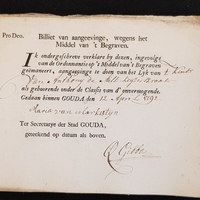 Pro Deo.
Billiet van aangeevinge, wegens het
Middel van 't Begraven.
IK ondergeschreve verklare by dezen, ingevolge
van de Ordonnantie op 't Middel van 't Begraven
geëmaneert, aangeevinge te doen van het Lyk van 't kindt
van Anthony de
als gehoorende onder de Classis van d' onvermogende.
Gedaan binnen GOUDA, den 12 April 1792
Maria van
Ter Secretarye der Stad GOUDA,
geteekend op datum als boven.